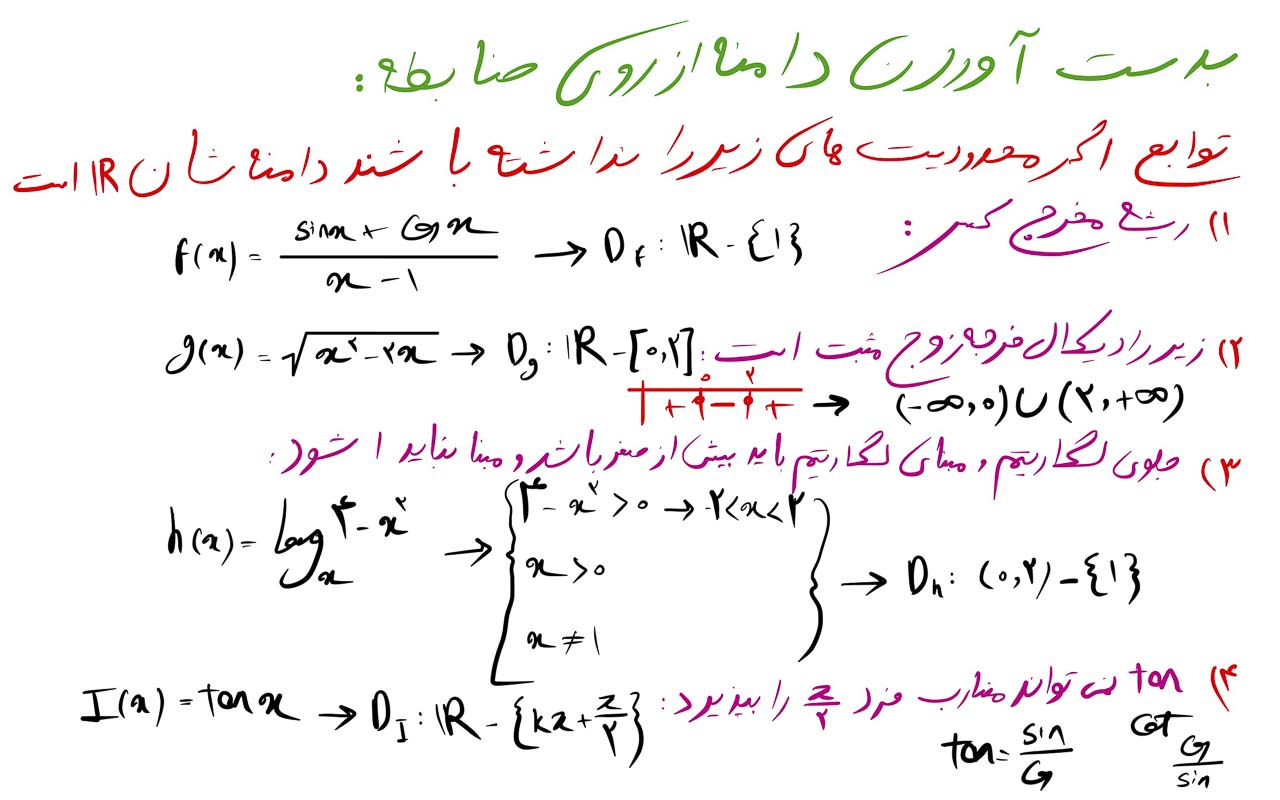 بدست آوردن دامنه از روی ضابطه :
توابع اگر محدودیت های زیر را نداشته باشند دامنه شان IR است
۱) ریشه مخرج کسر :
f(x) = (sinx + Cosx) / (x - ۱) → D_f : IR - {۱}
۲) زیر رادیکال فرجه زوج مثبت است :
g(x) = √(x^۲ - ۲x) → D_g : IR - [۰,۲]
۰ ۲
+ - + → (-∞,۰) ∪ (۲,+∞)
۳) جلوی لگاریتم و مبنای لگاریتم باید بیش از صفر باشد و مبنا نباید ۱ شود :
h(x) = Log_x ۴-x^۲ → { ۴-x^۲ > ۰ → -۲<x<۲
x > ۰
x ≠ ۱ } → D_h : (۰,۲) - {۱}
۴) tan نمی تواند مضارب فرد π/۲ را بپذیرد :
I(x) = tanx → D_I : IR - {kπ + π/۲}
tan = sin/Cos
Cot Cos/sin